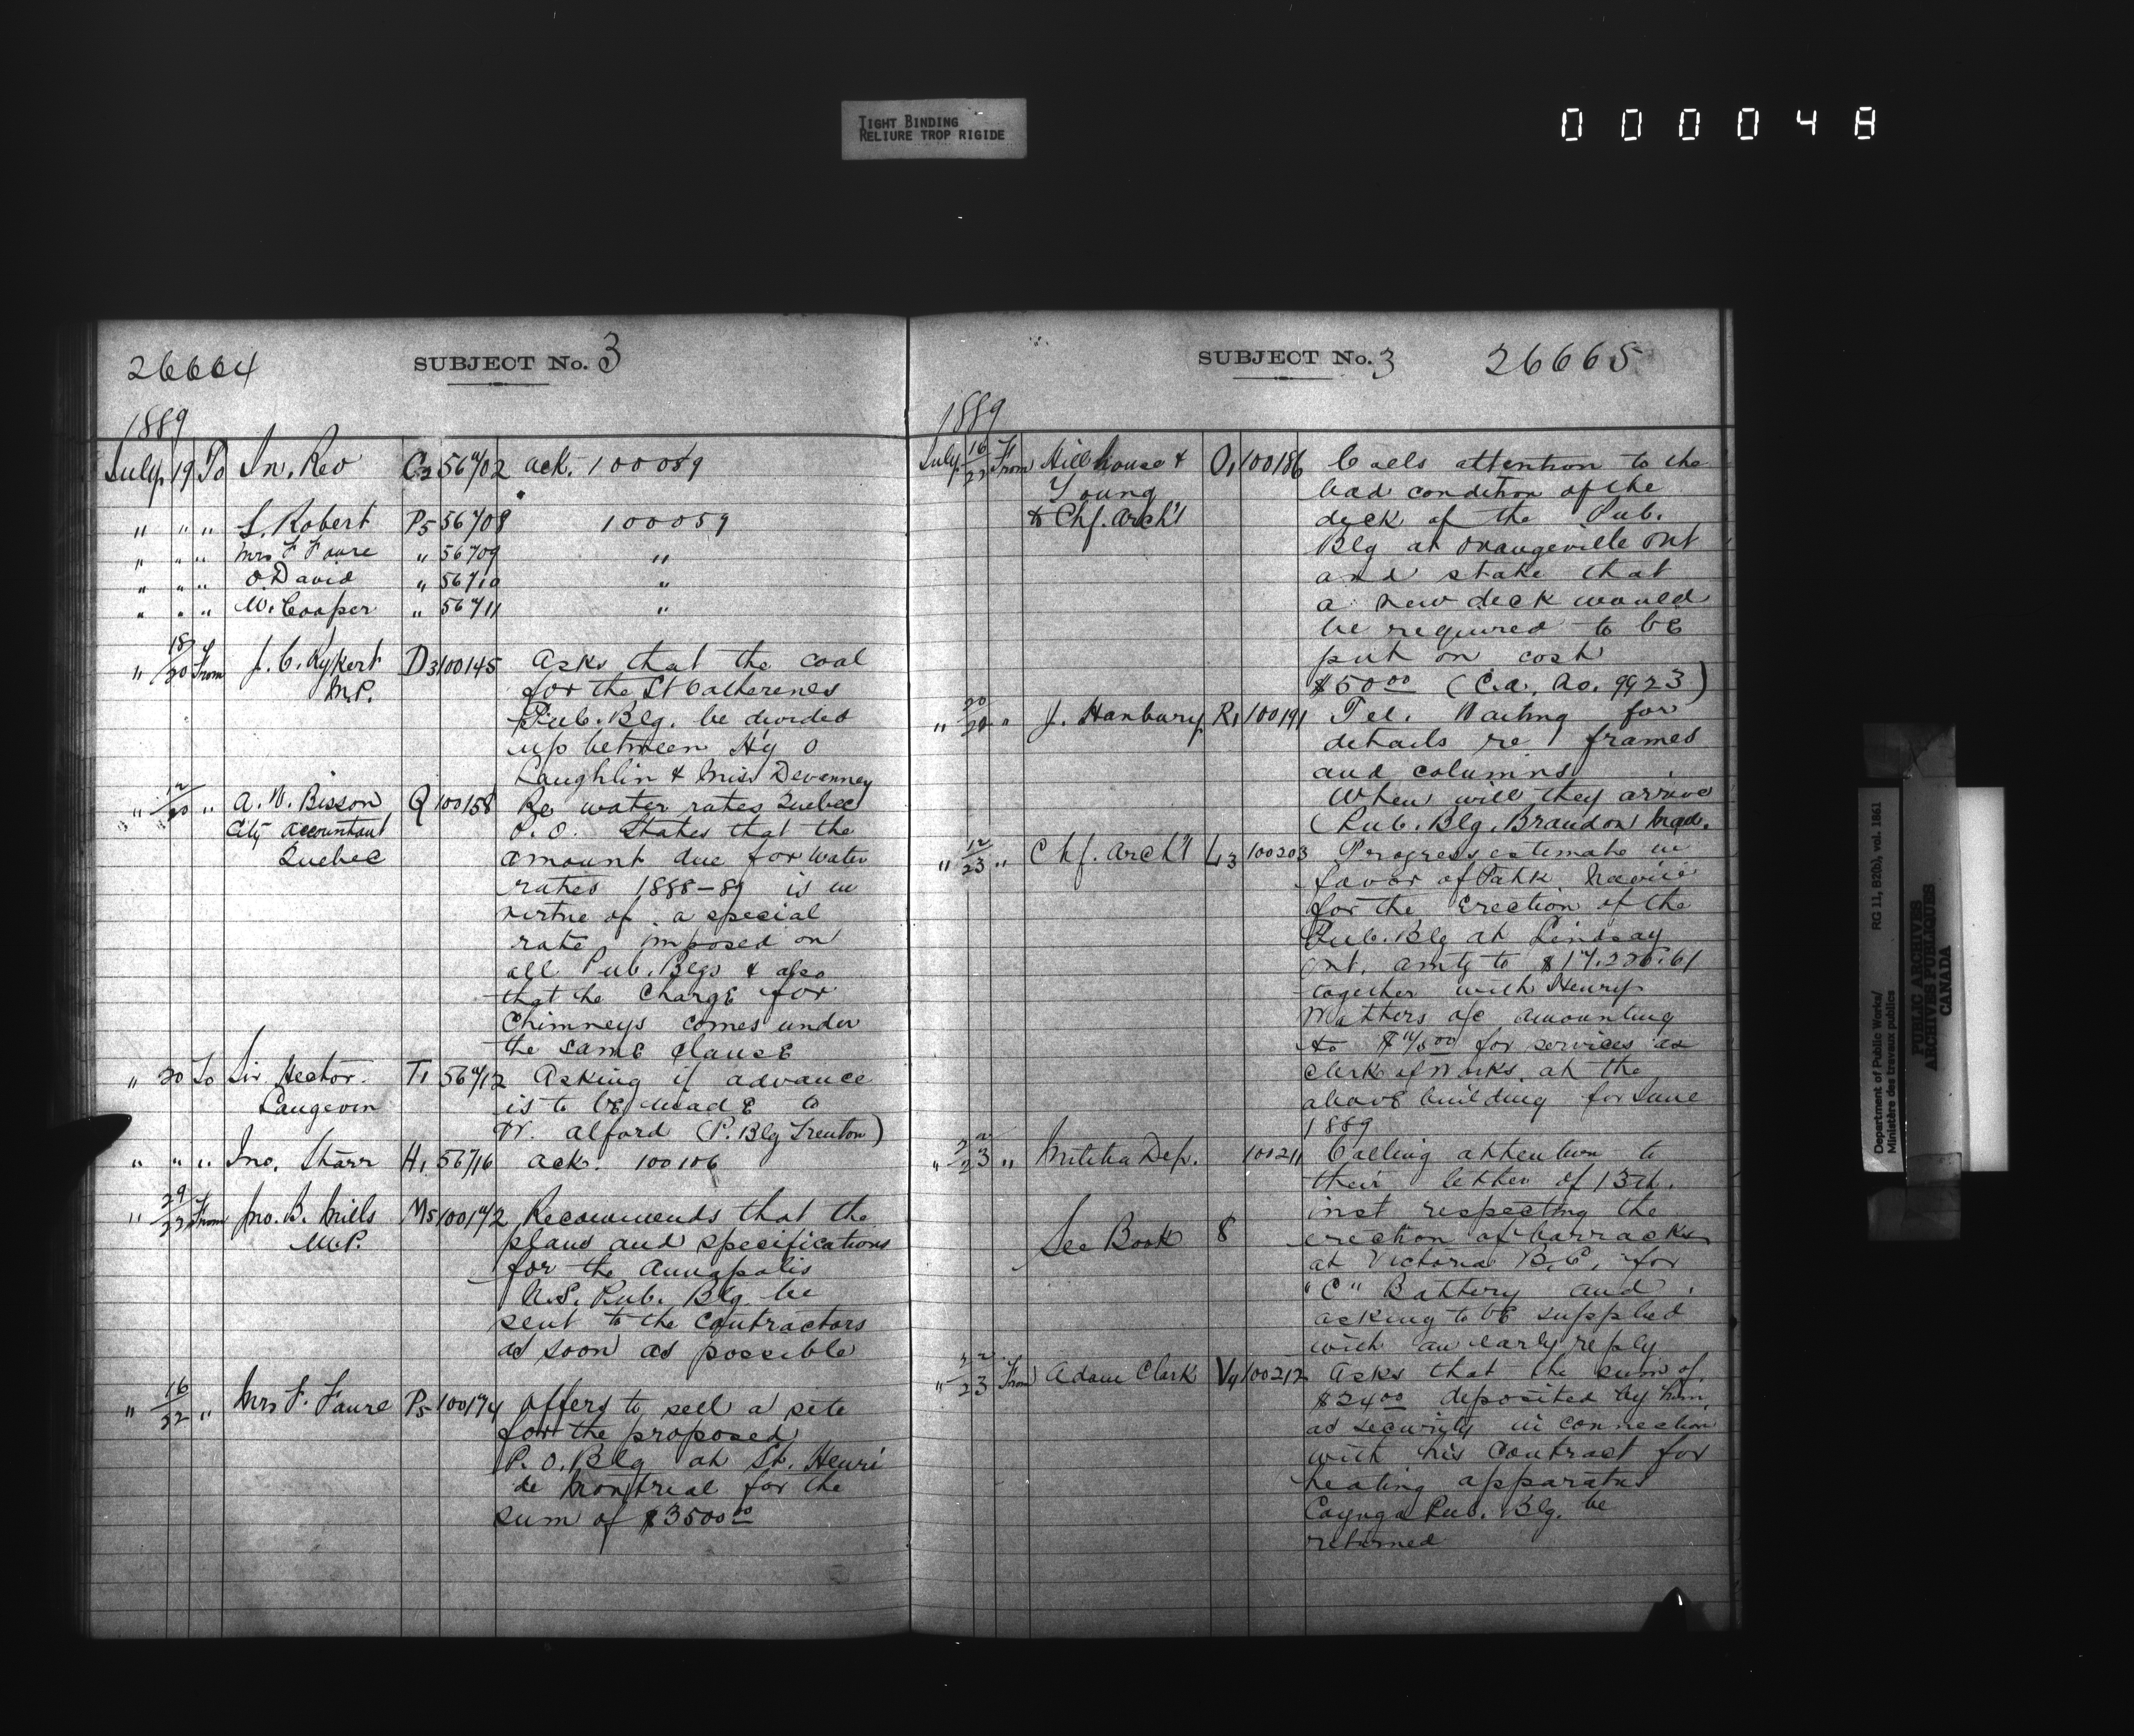 TIGHT BINDING
RELIURE TROP RIGIDE
000048
26664
SUBJECT No. 3
1889
July 19 To In. Rev C2 56702 ack. 100089
" " " L. Robert P5 56708 100059
" " " Mrs F Faure " 56709 "
" " " O David " 56710 "
" " " W. Cooper " 56711 "
" 18/20 From J. C. Rykert D3 100145 Asks that the coal
M.P. for the St Catherenes
Pub. Blg. be divided
up between Hy O
Laughlin & Miss Devenney
" 12/20 " A. W. Bisson Q 100158 Re water rates Quebec
City Accountant P.O. States that the
Quebec amount due for water
rates 1888-89 is in
virtue of a special
rate imposed on
all Pub. Blgs & also
that the Charge for
Chimneys comes under
the same clause
" 20 To Sir Hector T1 56712 Asking if advance
Langevin is to be made to
W. Alford (P. Blg Trenton)
" " " Jno. Starr H1 56716 ack. 100106
" From Jno. B. Mills M5 100172 Recommends that the
M.P. plans and specifications
for the Annapolis
N.S. Pub. Blg. be
sent to the Contractors
as soon as possible
" 16/22 " Mrs F. Faure P5 100174 Offers to sell a site
for the proposed
P.O. Blg at St. Henri
de Montreal for the
sum of $3500 00
SUBJECT No. 3
26665
1889
July 16/22 From Hillhouse & O1 100186 Calls attention to the
Young bad condition of the
to Chf. Arch't deck of the Pub.
Blg at Orangeville Ont
and state that
a new deck would
be required to be
put on cost
$50 00 (C.A. No. 9923)
" 20/20 " J. Hanbury R1 100191 Tel. Waiting for
details re frames
and columns
When will they arrive
(Pub. Blg. Brandon Man.
" 12/23 " Chf. Arch't L3 100203 Progress estimate in
favor of Patk
for the Erection of the
Pub. Blg at Lindsay
Ont. amtg to
together with Henry
Matthers a/c amounting
to for services as
Clerk of Works at the
above building for June
1889
" 22/23 " Militia Dep. 100211 Calling attention to
their letter of 13th.
inst respecting the
See Book 8 erection of barracks
at Victoria B.C. for
"C" Battery and
asking to be supplied
with an early reply
" 22/23 From Adam Clark V4 100212 Asks that the sum of
$24 00 deposited by him
as security in connection
with his contract for
heating apparatus
Cayuga Pub. Blg. be
returned
Department of Public Works/ RG 11, B2(b), vol. 1861
Ministère des travaux publics
PUBLIC ARCHIVES
ARCHIVES PUBLIQUES
CANADA